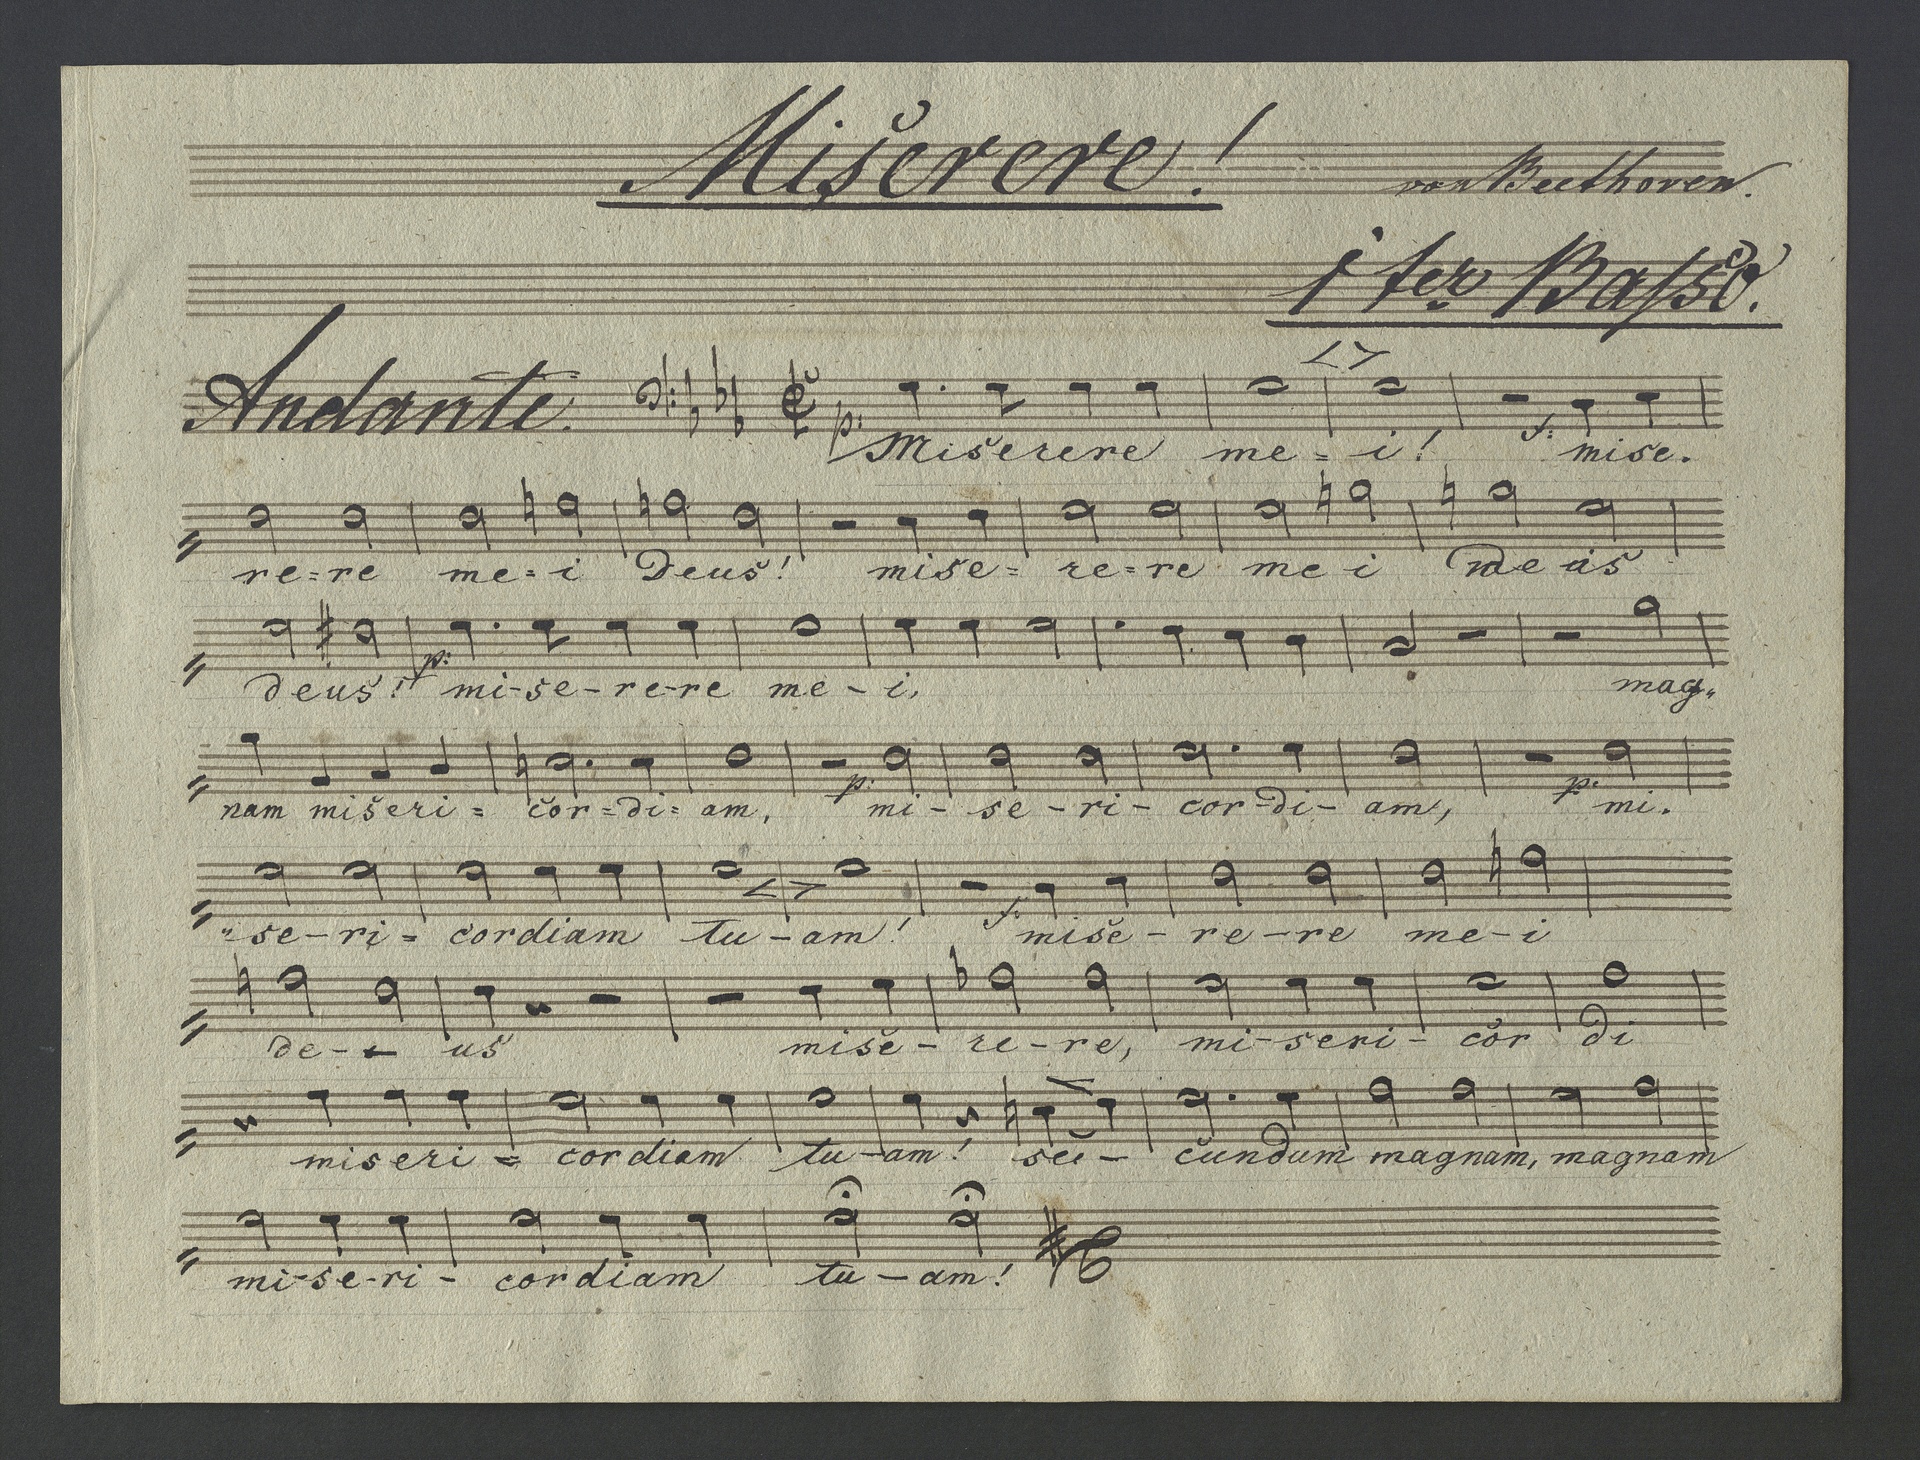 Miserere!
von Beethoven.
1ter Baſso.
Andante.
p: Miserere me = i! f: mise.
re=re me=i Deus! mise= re=re me i De us
deus! p: mi-se-re-re me-i, mag„
nam miseri= cor=di=am, p: mi-se-ri-cor-di-am, p: mi.
„se-ri= cordiam tu-am! f: mise-re-re me-i
de- us mise-re-re, mi-seri-cor di
miseri= cordiam tu-am! se- cundum magnam, magnam
mi-se-ri-cordiam tu-am!